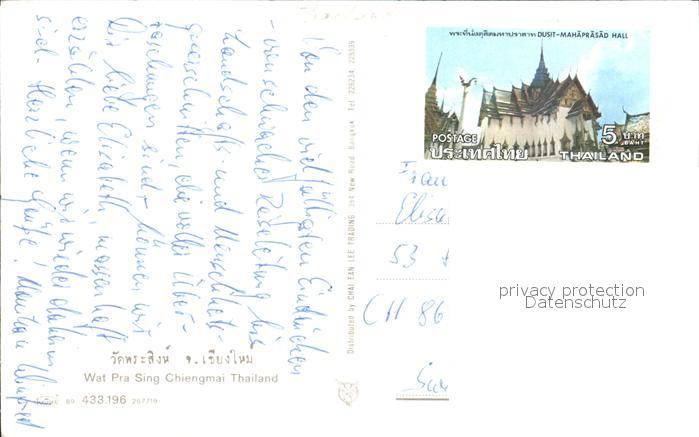 Von den vielfältigen Eindrücken
- menschliche Begleitung bis
Landschafts- und Menschheits-
querschnitten, die voller Über-
raschungen sind - können wir
Dir liebe Elisabeth, massenhaft
erzählen, wenn wir wieder daheim
sind. Herzliche Grüsse!
วัดพระสิงห์ จ.เชียงใหม่
Wat Pra Sing Chiengmai Thailand
69 433.196 267/19
Distributed by CHAI FAN LEE TRADING 394 New Road Bangkok Tel. 226234 225339
พระที่นั่งดุสิตมหาปราสาท DUSIT-MAHĀPRĀSĀD HALL
POSTAGE 5 บาท
BAHT
ประเทศไทย THAILAND
Frau
Elisa
53
CH 86
privacy protection
Datenschutz